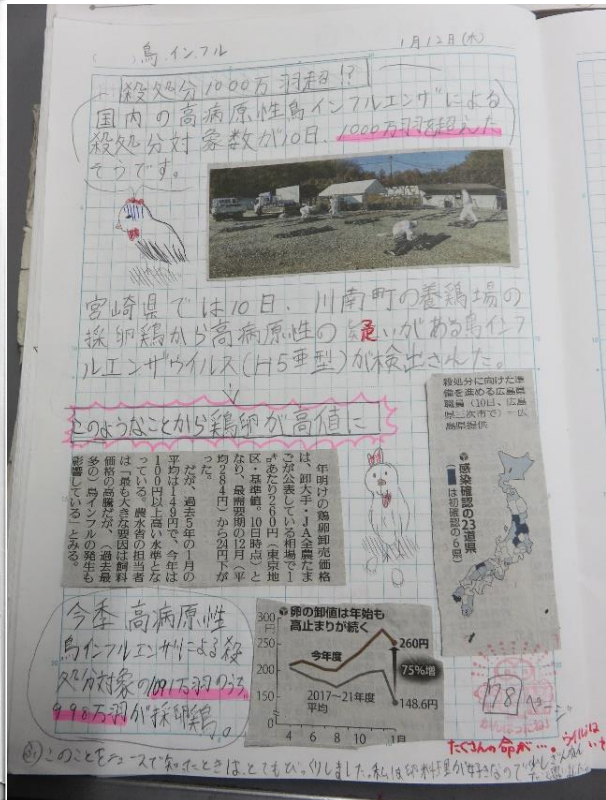 鳥インフル
1月12日(木)
殺処分1000万羽超!?
国内の高病原性鳥インフルエンザによる
殺処分対象数が10日、1000万羽を超えた
そうです。
宮崎県では10日、川南町の養鶏場の
採卵鶏から高病原性の疑いがある鳥インフ
ルエンザウイルス(H5亜型)が検出された。
↓
このようなことから鶏卵が高値に
殺処分に向けた準
備を進める広島県
職員(10日、広島
県三次市で)=広
島県提供
感染確認の23道県
(■は初確認の6県)
年明けの鶏卵卸売価格
は、卸大手・JA全農たま
ごが公表している相場で1
㌔あたり260円(東京地
区・基準値。10日時点)と
なり、最需要期の12月(平
均284円)から24円下が
った。
だが、過去5年の1月の
平均は149円で、今年は
100円以上高い水準とな
っている。農水省の担当者
は「最も大きな要因は飼料
価格の高騰だが、(過去最
多の)鳥インフルの発生も
影響している」とみる。
今季高病原性
鳥インフルエンザによる殺
処分対象の1091万羽のうち
998万羽が採卵鶏。
卵の卸値は年始も
高止まりが続く
300円
250
200
150
0
今年度
260円
75%増
2017~21年度
平均
148.6円
4 6 8 10 12 1月
178ページ
たくさんの命が…。
このことをニュースで知ったときは、とてもびっくりしました。私は卵料理が好きなので